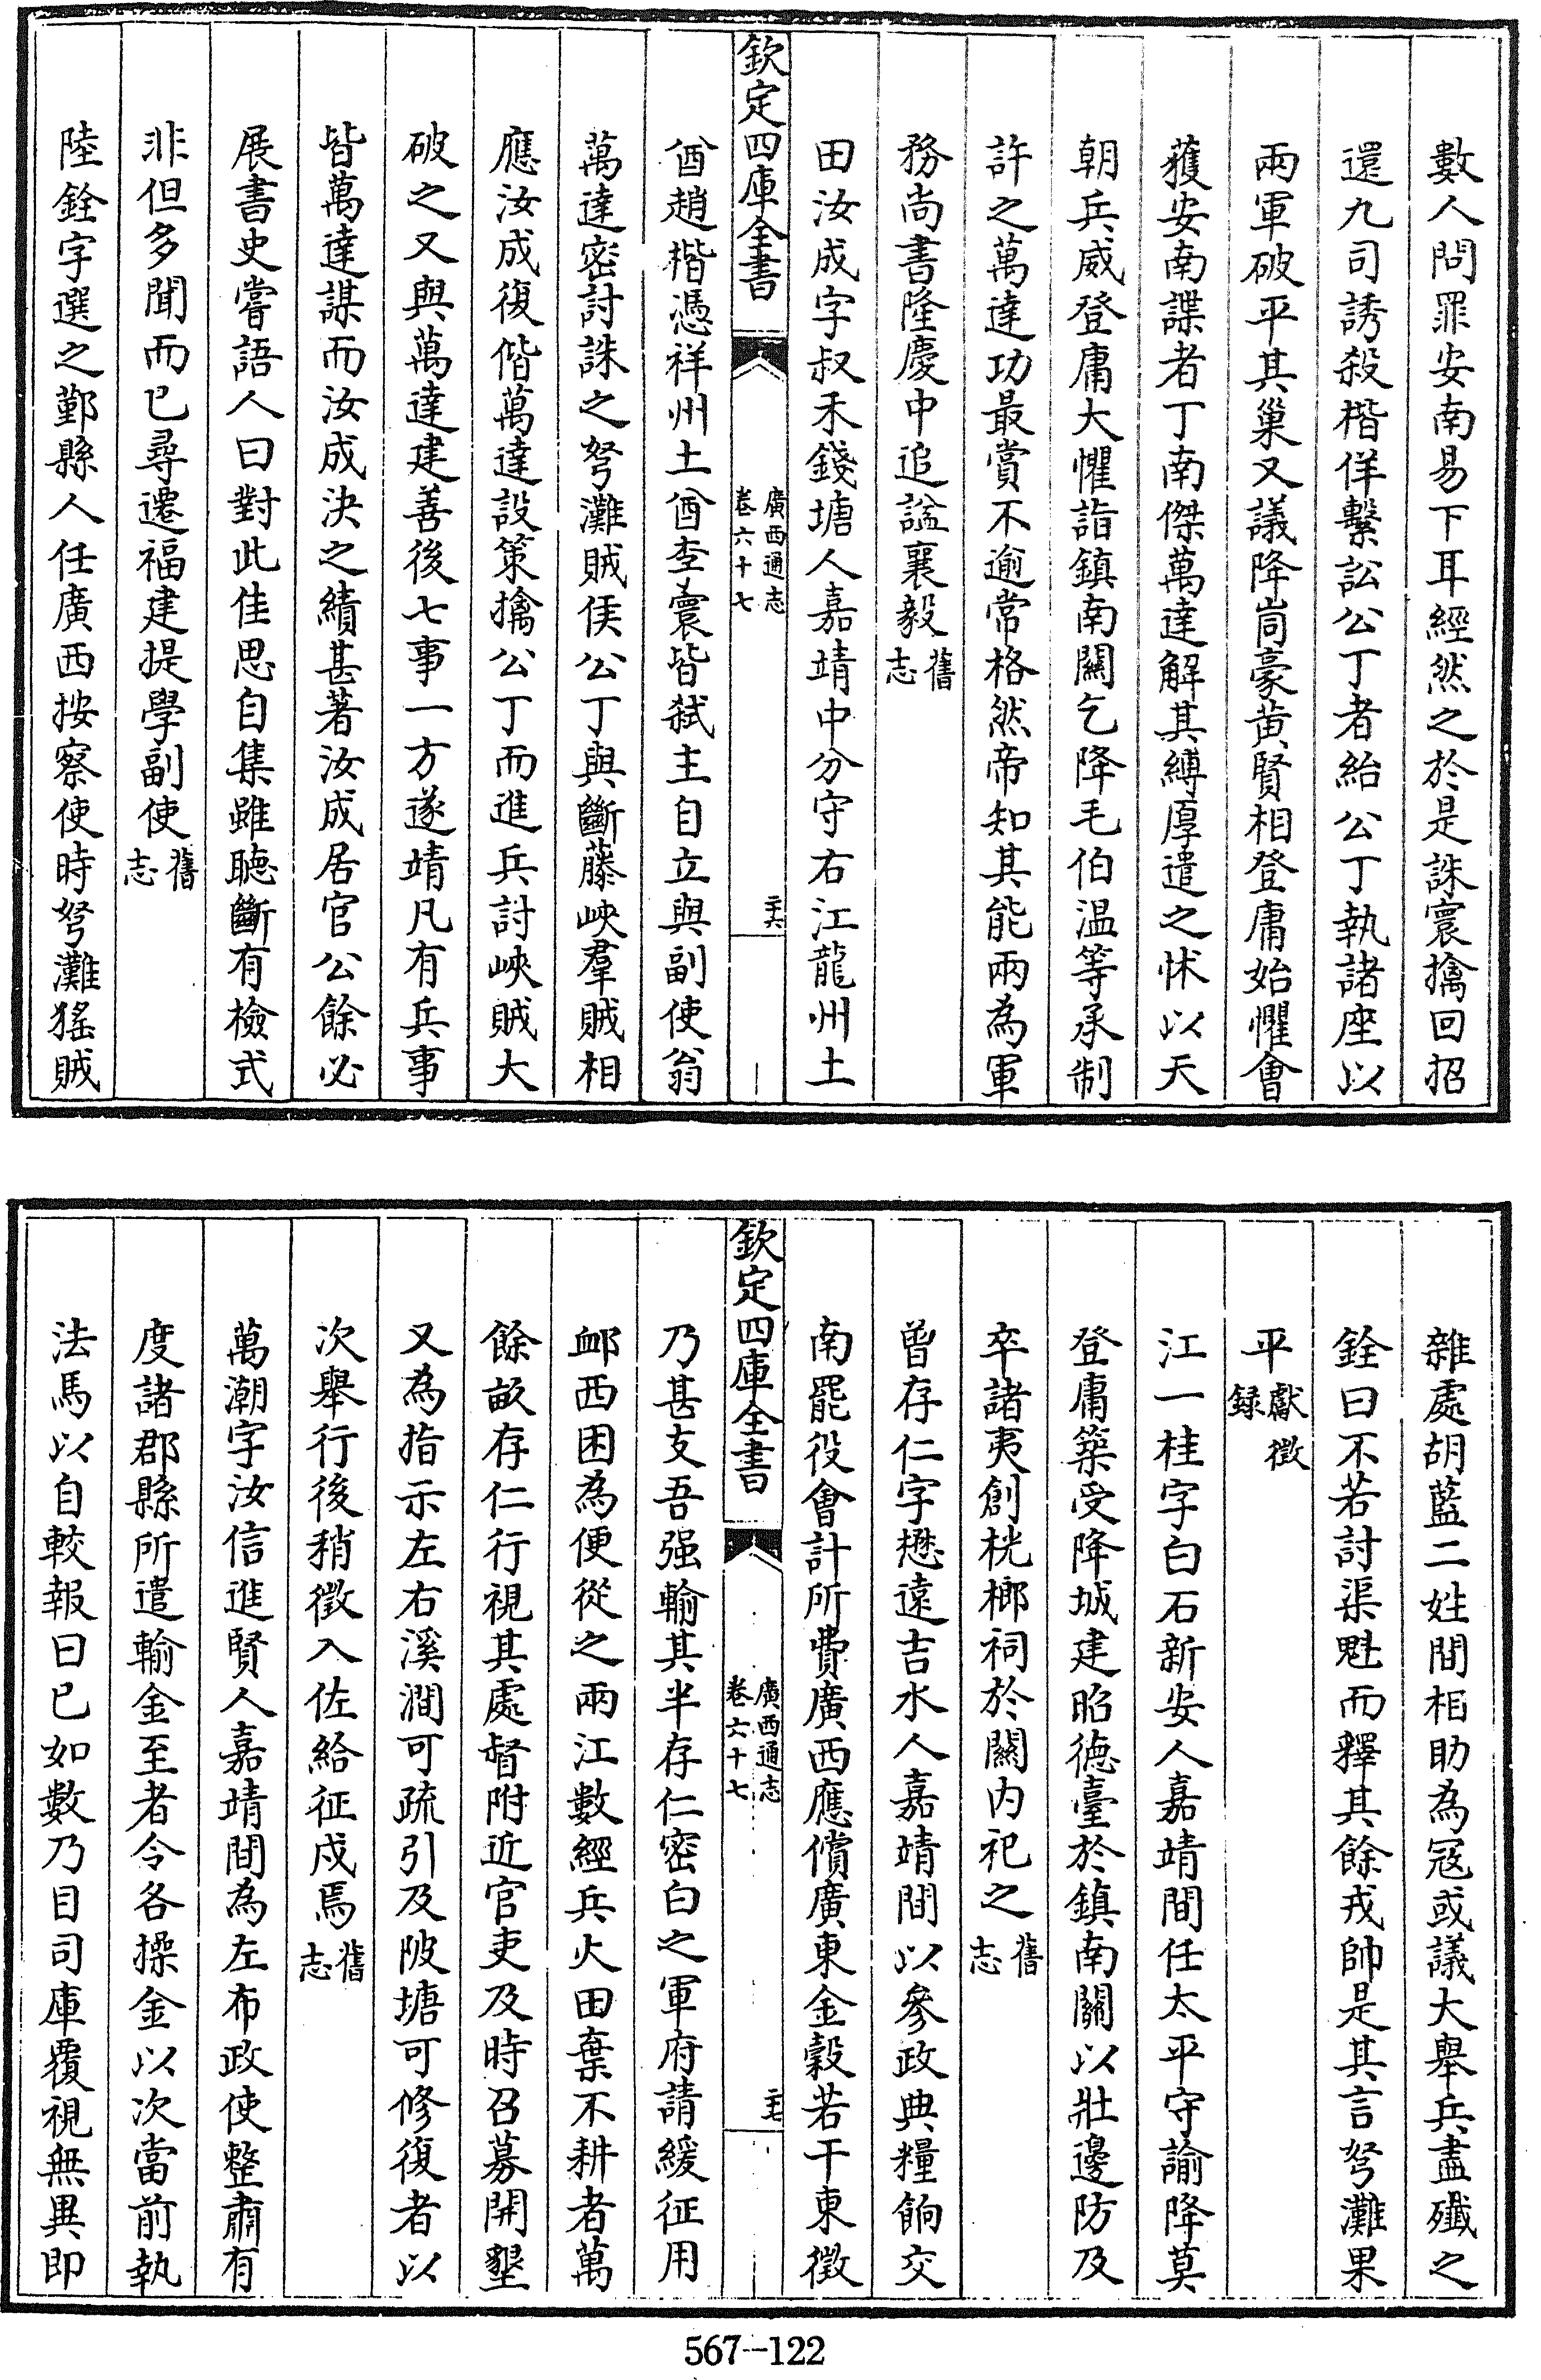 數人問罪安南易下耳經然之於是誅寰擒回招
還九司誘殺楷佯繫訟公丁者紿公丁執諸座以
兩軍破平其巢又議降峝豪黄賢相登庸始懼會
獲安南諜者丁南傑萬達解其縛厚遣之怵以天
朝兵威登庸大懼詣鎮南關乞降毛伯温等承制
許之萬達功最賞不逾常格然帝知其能兩為軍
務尚書隆慶中追諡襄毅舊志
田汝成字叔禾錢塘人嘉靖中分守右江龍州土
欽定四庫全書
廣西通志
卷六十七
二十六
酋趙楷憑祥州土酋李寰皆弑主自立與副使翁
萬達密討誅之弩灘賊侯公丁與斷藤峽羣賊相
應汝成復偕萬達設策擒公丁而進兵討峽賊大
破之又與萬達建善後七事一方遂靖凡有兵事
皆萬達謀而汝成決之績甚著汝成居官公餘必
展書史嘗語人曰對此佳思自集雖聽斷有檢式
非但多聞而已尋遷福建提學副使舊志
陸銓字選之鄞縣人任廣西按察使時弩灘猺賊
雜處胡藍二姓間相助為冦或議大舉兵盡殲之
銓曰不若討渠魁而釋其餘戎帥是其言弩灘果
平獻徵録
江一桂字白石新安人嘉靖間任太平守諭降莫
登庸築受降城建昭德臺於鎮南關以壯邊防及
卒諸夷創桄榔祠於關内祀之舊志
曾存仁字懋遠吉水人嘉靖間以參政典糧餉交
南罷役會計所費廣西應償廣東金穀若干東徵
欽定四庫全書
廣西通志
卷六十七
二十七
乃甚支吾强輸其半存仁密白之軍府請緩征用
䘏西困為便從之兩江數經兵火田棄不耕者萬
餘畝存仁行視其處督附近官吏及時召募開墾
又為指示左右溪澗可疏引及陂塘可修復者以
次舉行後稍徵入佐給征戍焉舊志
萬潮字汝信進賢人嘉靖間為左布政使整肅有
度諸郡縣所遣輸金至者令各操金以次當前執
法馬以自較報曰已如數乃目司庫覆視無異即
567-122